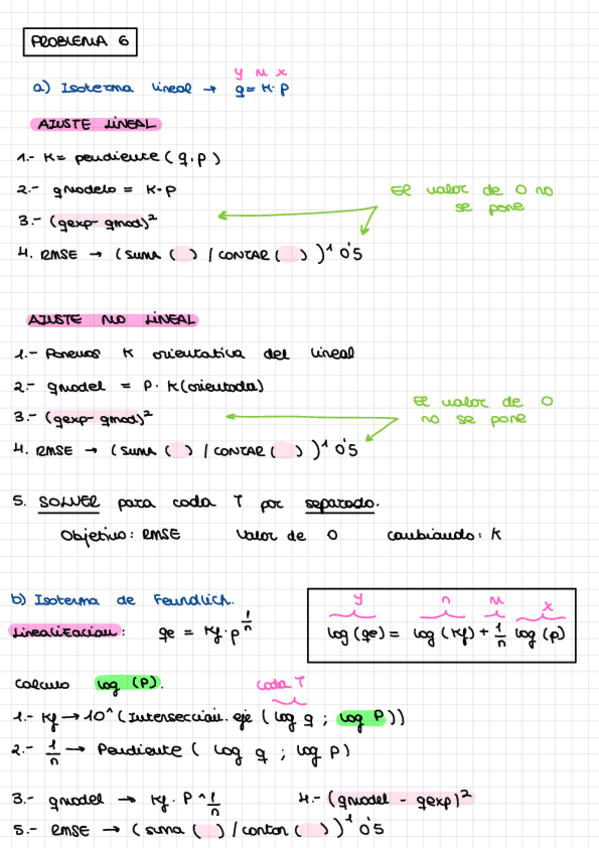 PROBLEMA 6
y m x
a) Isoterma lineal → q = K · P
AJUSTE LINEAL
1.- K = pendiente (q, p)
2.- qmodelo = K · P
El valor de 0 no
se pone
3.- (qexp - qmod)²
4. RMSE → (SUMA ( ) / CONTAR ( ))^0'5
AJUSTE NO LINEAL
1.- Ponemos K orientativa del lineal
2.- qmodel = P · K (orientada)
El valor de 0
no se pone
3.- (qexp - qmod)²
4. RMSE → (SUMA ( ) / CONTAR ( ))^0'5
5. SOLVER para cada T por separado.
Objetivo: RMSE Valor de 0 cambiando: K
b) Isoterma de Feundlich.
y n m x
Linealizacion: qe = Kf · p^1/n
log (qe) = log (Kf) + 1/n log (p)
Calculo log (P).
cada T
1.- Kf → 10^ (Intersección. eje (log q ; log P))
2.- 1/n → Pendiente ( log q ; log P)
3.- qmodel → Kf · P ^ 1/n 4.- (qmodel - qexp)²
5.- RMSE → (suma ( ) / contar ( ))^0'5